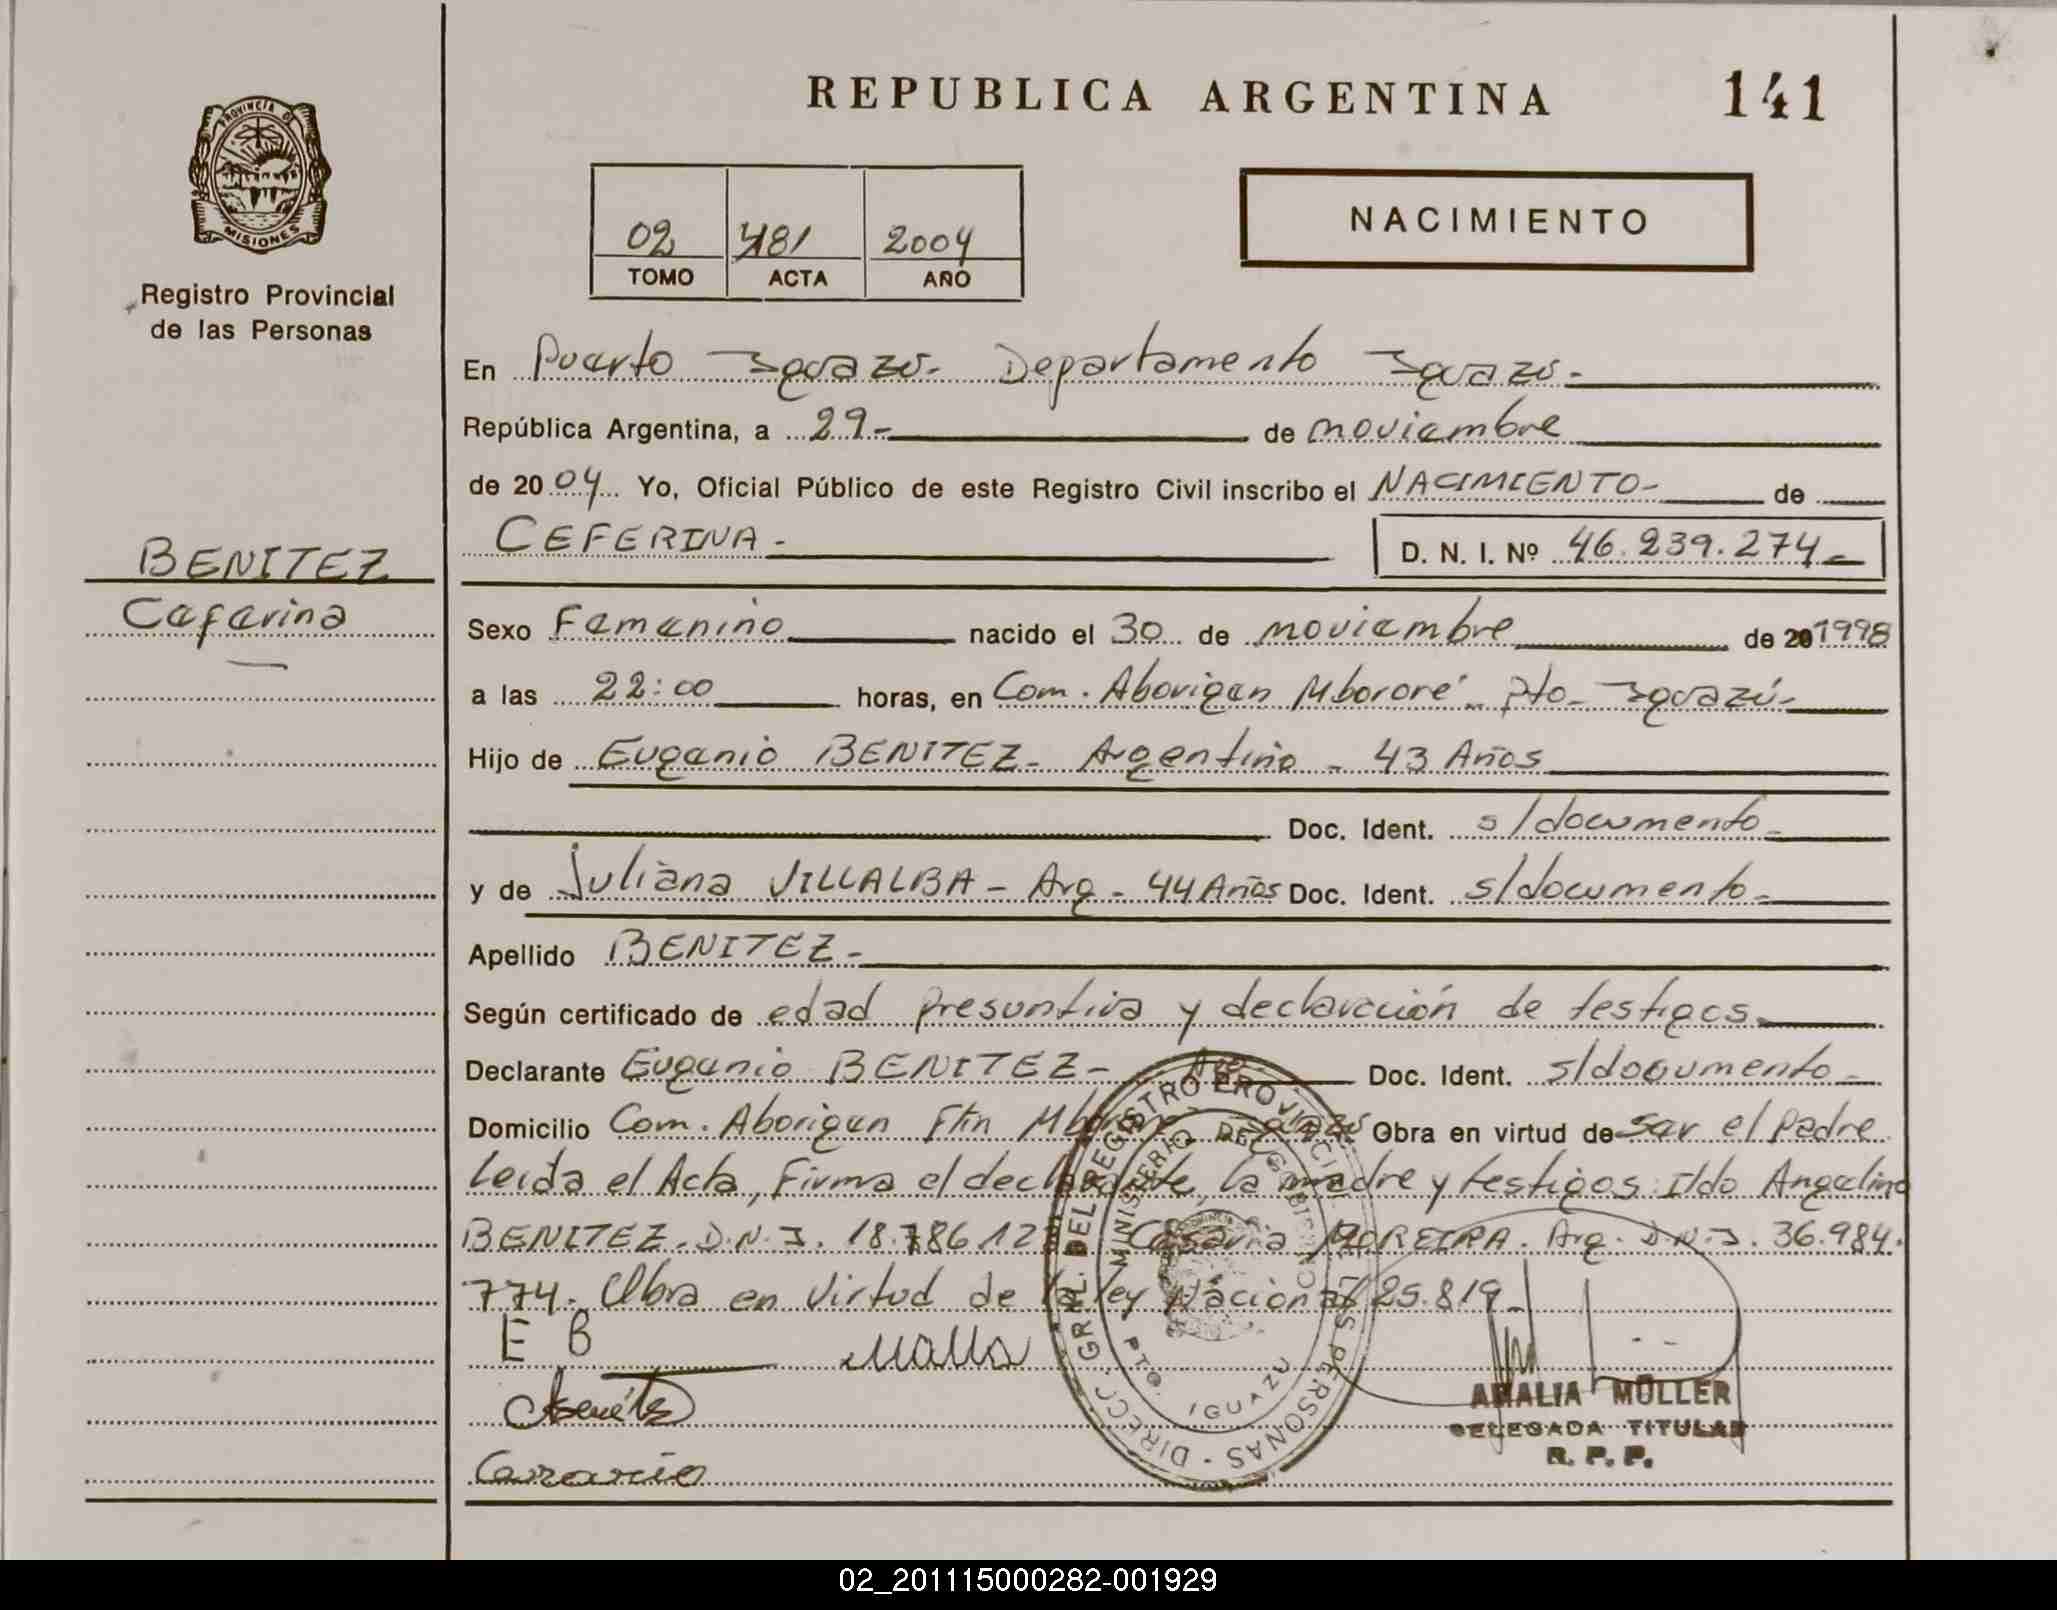 REPUBLICA ARGENTINA 141
PROVINCIA DE MISIONES
Registro Provincial
de las Personas
02 481 2004
TOMO ACTA AÑO
NACIMIENTO
En Puerto Iguazú- Departamento Iguazú-
República Argentina, a 29- de noviembre
de 2004 Yo, Oficial Público de este Registro Civil inscribo el NACIMIENTO- de
CEFERINA- D. N. I. Nº 46.239.274-
BENITEZ
Ceferina
Sexo Femenino nacido el 30 de noviembre de 20 1998
a las 22:00 horas, en Com. Aborigen Mbororé- Pto- Iguazú-
Hijo de Eugenio BENITEZ- Argentino - 43 Años
Doc. Ident. s/documento-
y de Juliana VILLALBA- Arg- 44 Años Doc. Ident. s/documento-
Apellido BENITEZ-
Según certificado de edad presuntiva y declaración de testigos
Declarante Eugenio BENITEZ- Arg Doc. Ident. s/documento-
Domicilio Com. Aborigen Ftin Mbororé Iguazú Obra en virtud de ser el Padre
Leída el Acta, Firma el declarante, la madre y testigos: Ildo Angelino
BENITEZ. D.N.I. 18.786.12 MOREIRA. Arg. D.N.I. 36.984.
774. Obra en Virtud de la ley Nacional 25.819-
E B
DIRECC. GRAL. DEL REGISTRO PROVINCIAL DE LAS PERSONAS
MINISTERIO DE GOBIERNO
PTO. IGUAZU
AMALIA MÜLLER
DELEGADA TITULAR
R. P. P.
02_201115000282-001929